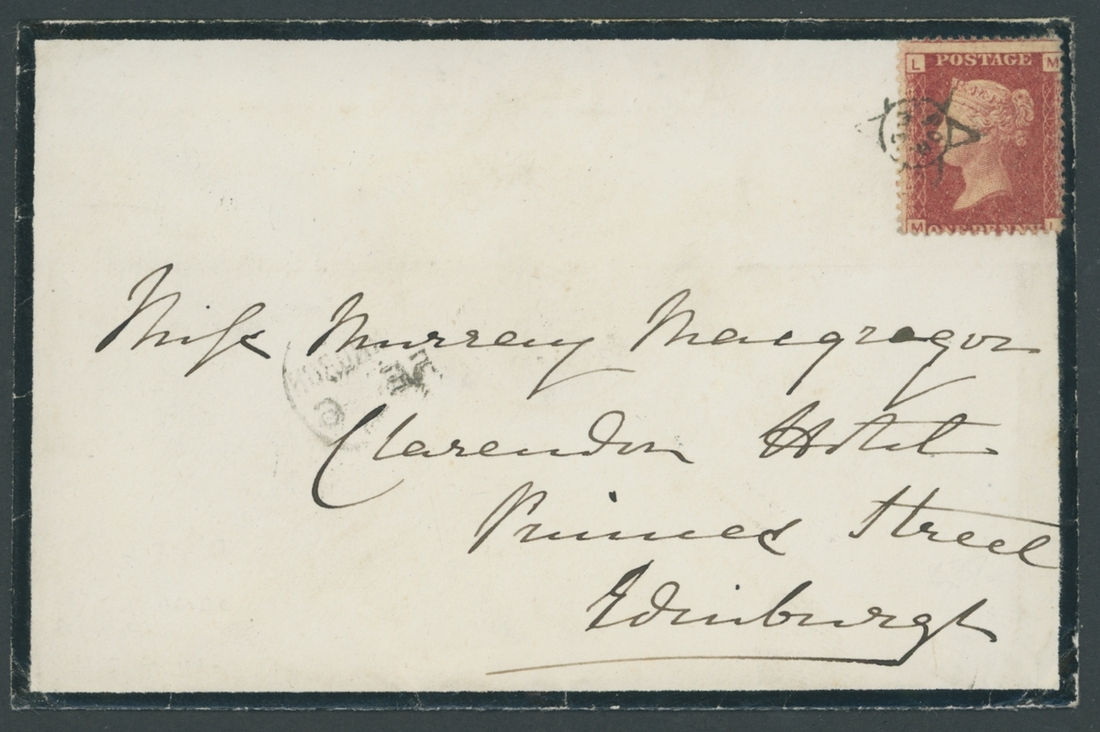 L POSTAGE M
M ONE PENNY L
Miss Murray Macgregor
Clarendon Hotel
Princes Street
Edinburgh